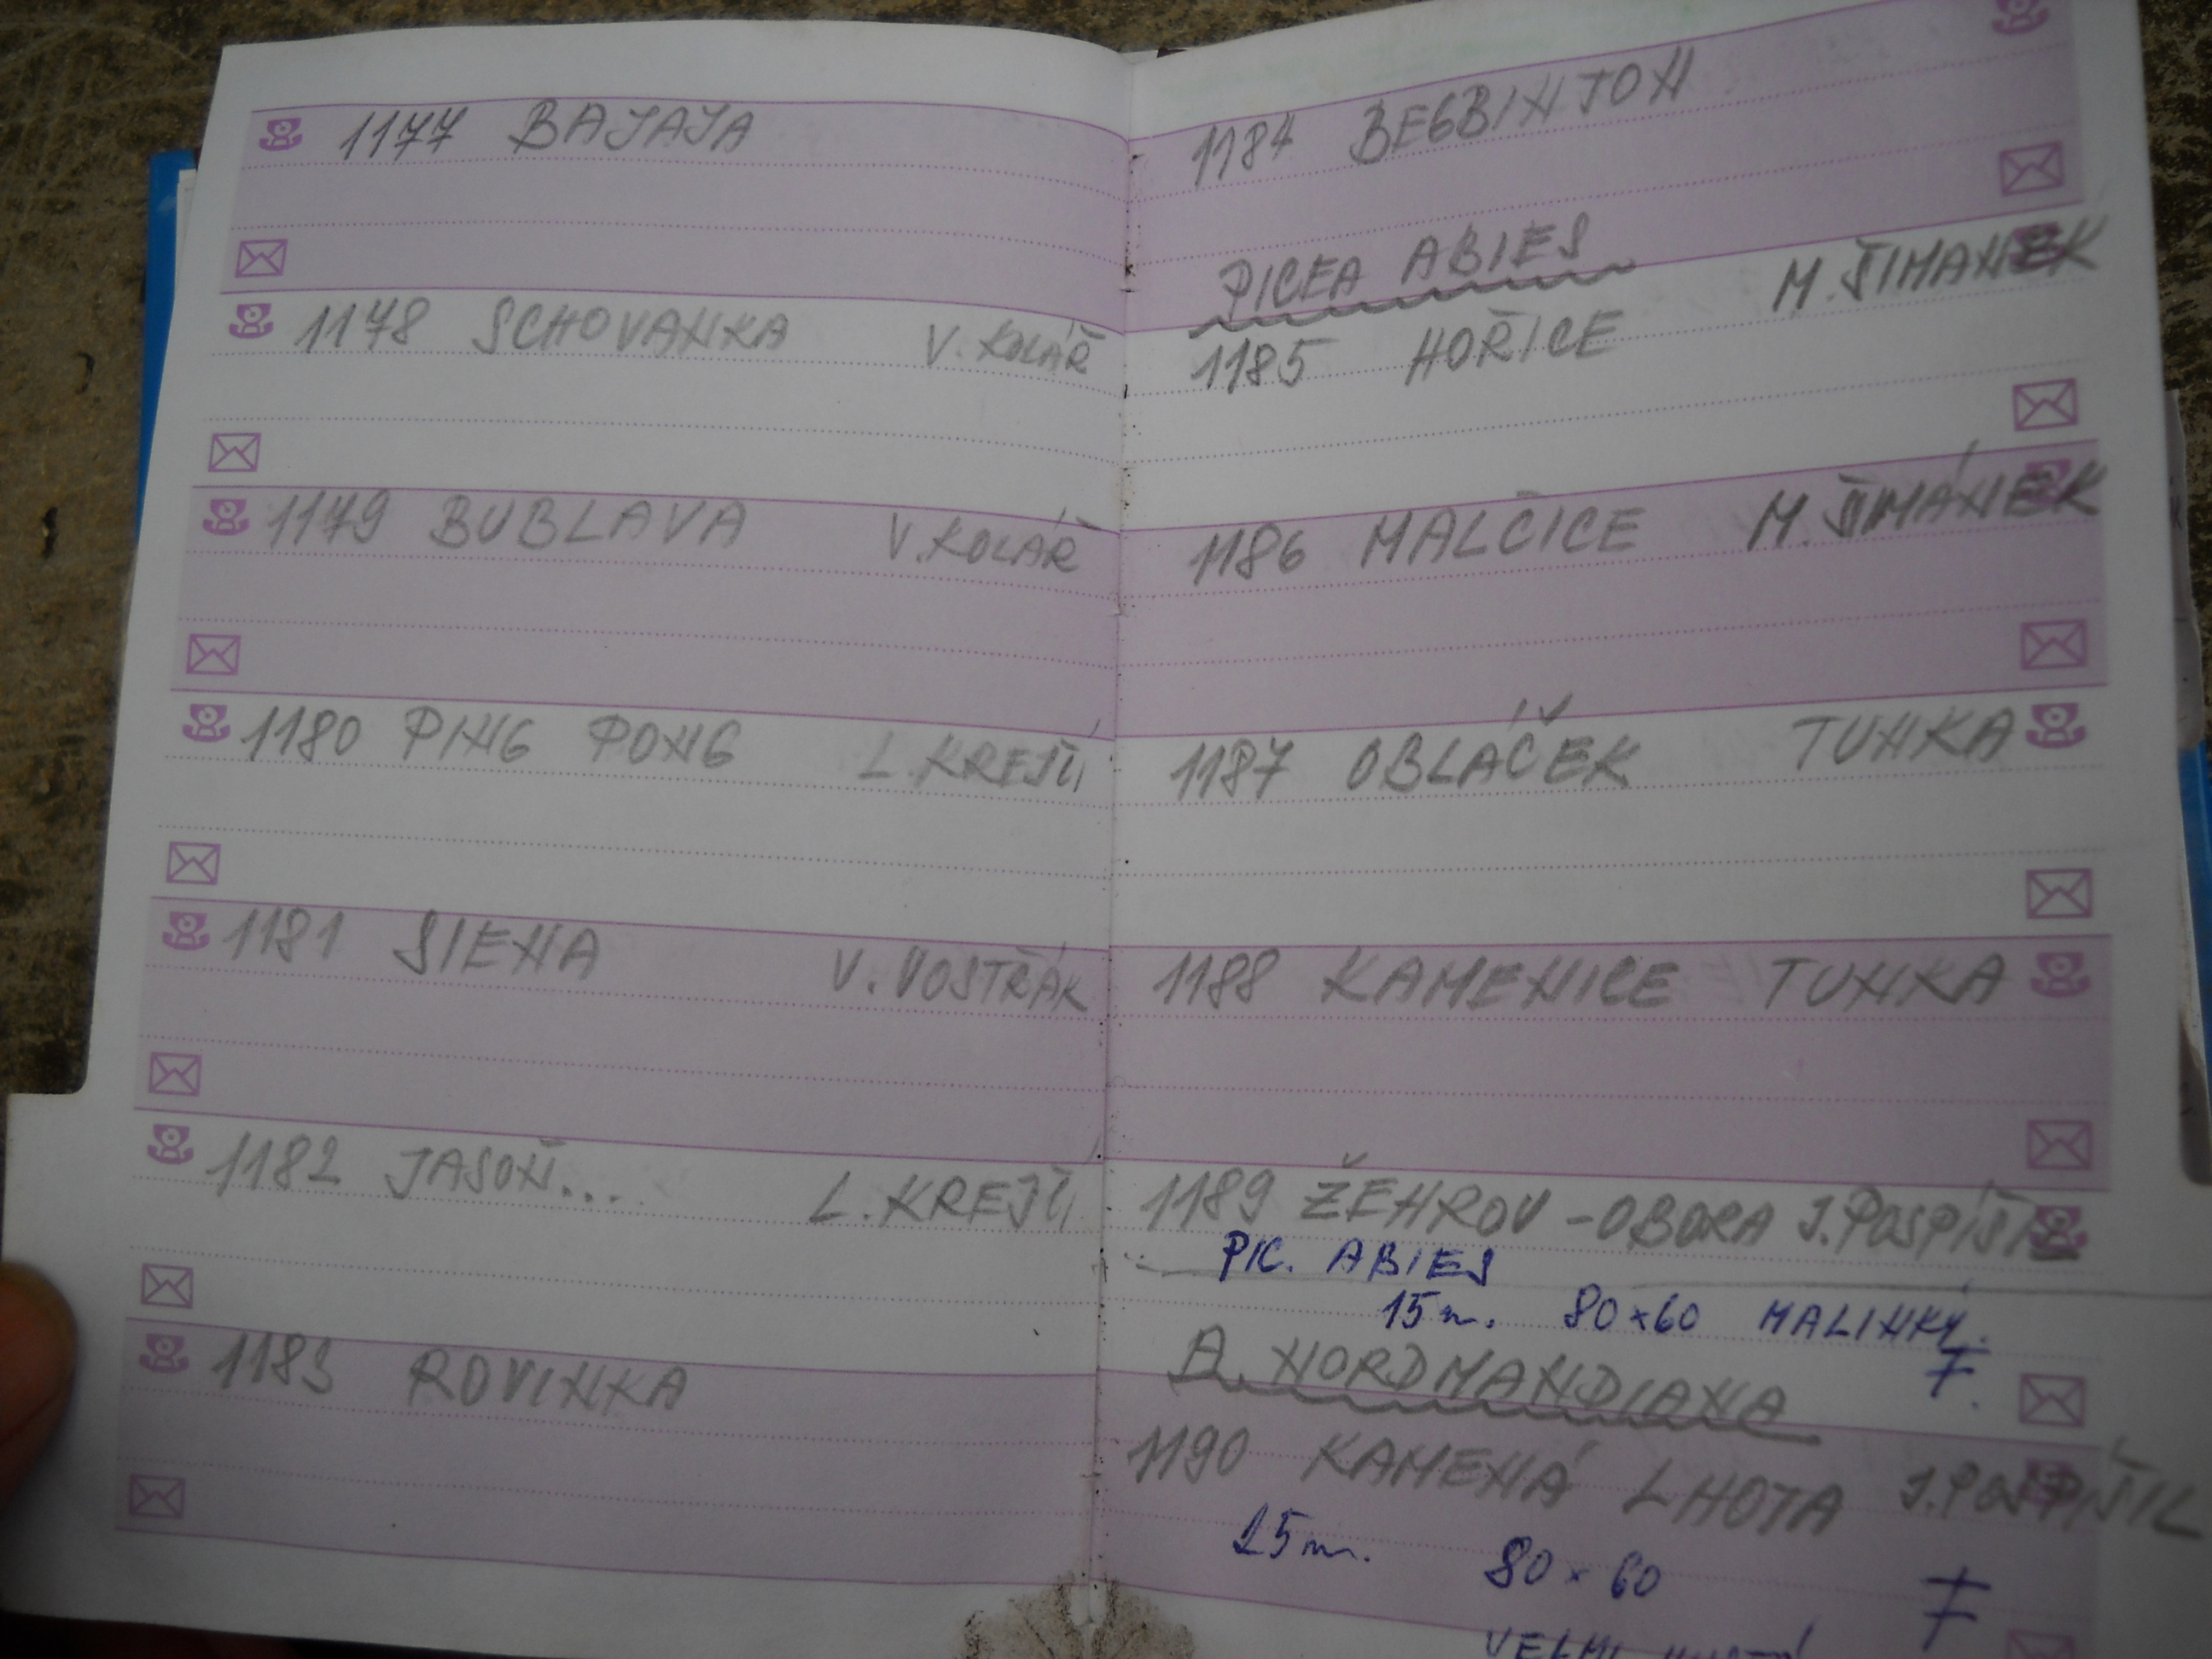 1177 BAJAJA
1178 SCHOVANKA V. KOLÁŘ
1179 BUBLAVA V. KOLÁŘ
1180 PING PONG L. KREJČÍ
1181 SIENA V. VOSTŘÁK
1182 JASOŇ... L. KREJČÍ
1183 ROVINKA
1184 BEGBINTON
PICEA ABIES
1185 HOŘICE M. ŠIMANEK
1186 MALČICE M. ŠIMÁNEK
1187 OBLÁČEK TUNKA
1188 KAMENICE TUNKA
1189 ŽEHROV - OBORA J. POSPÍŠIL
PIC. ABIES
15 m. 80 x 60 MALINKÝ.
F.
A. NORDMANDIANA
1190 KAMENÁ LHOTA J. POSPÍŠIL
25 m. 80 x 60 F
VELMI